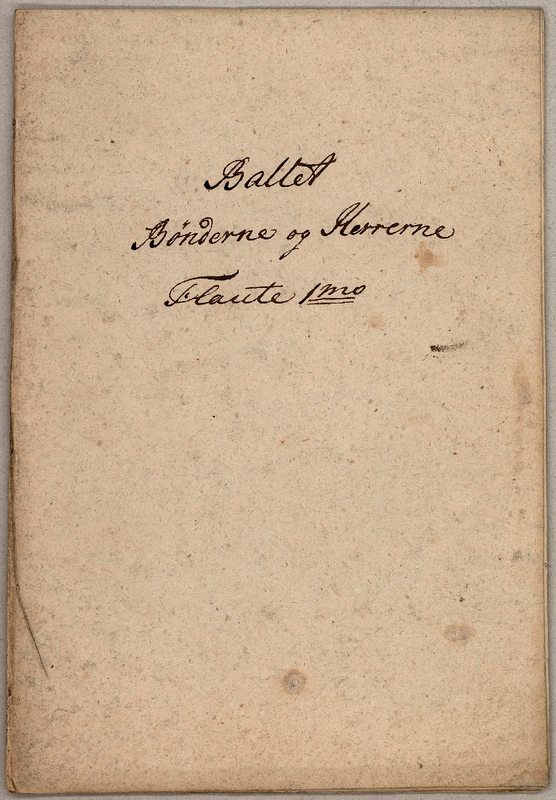 Ballet
Bönderne og Herrerne
Flaute 1mo